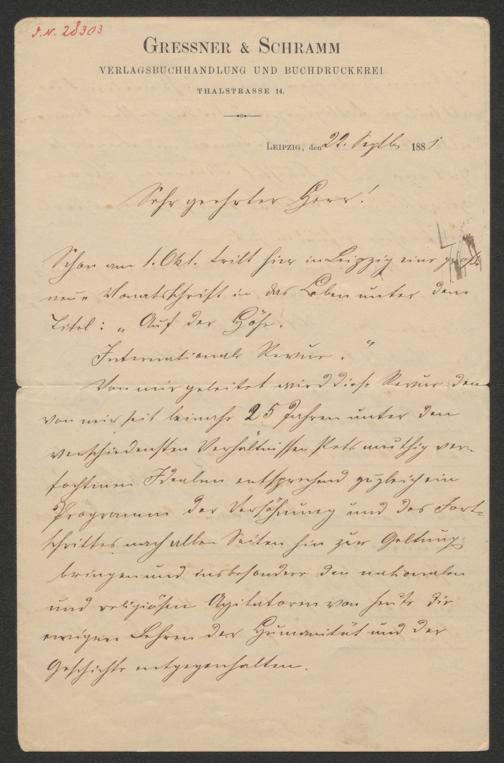 I.N. 28303
GRESSNER & SCHRAMM
VERLAGSBUCHHANDLUNG UND BUCHDRUCKEREI
THALSTRASSE 14.
LEIPZIG, den 22. Septb 1881
Sehr geehrter Herr!
Schon am 1. Okt. tritt hier in Leipzig eine große
neue Monatsschrift in das Leben unter dem
Titel: „Auf der Höhe.
Internationale Revue."
Von mir geleitet wird diese Revue den
von mir seit beinahe 25 Jahren unter den
verschiedensten Verhältnissen stets muthig ver-
fochtenen Idealen entsprechend zugleich ein
Programm der Versöhnung und des Fort-
schrittes nach allen Seiten hin zur Geltung
bringen und insbesondere den nationalen
und religiösen Agitatoren von heute die
ewigen Lehren der Humanität und der
Geschichte entgegenhalten.